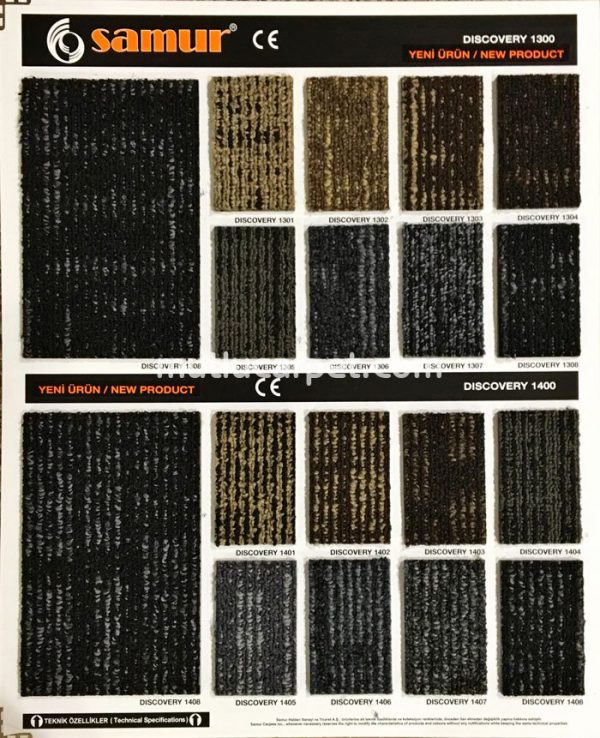 samur® CE DISCOVERY 1300
YENİ ÜRÜN / NEW PRODUCT
DISCOVERY 1301 DISCOVERY 1302 DISCOVERY 1303 DISCOVERY 1304
DISCOVERY 1308 DISCOVERY 1305 DISCOVERY 1306 DISCOVERY 1307 DISCOVERY 1308
mutlucarpet.com
YENİ ÜRÜN / NEW PRODUCT CE DISCOVERY 1400
DISCOVERY 1401 DISCOVERY 1402 DISCOVERY 1403 DISCOVERY 1404
DISCOVERY 1408 DISCOVERY 1405 DISCOVERY 1406 DISCOVERY 1407 DISCOVERY 1408
TEKNİK ÖZELLİKLER ( Technical Specifications )